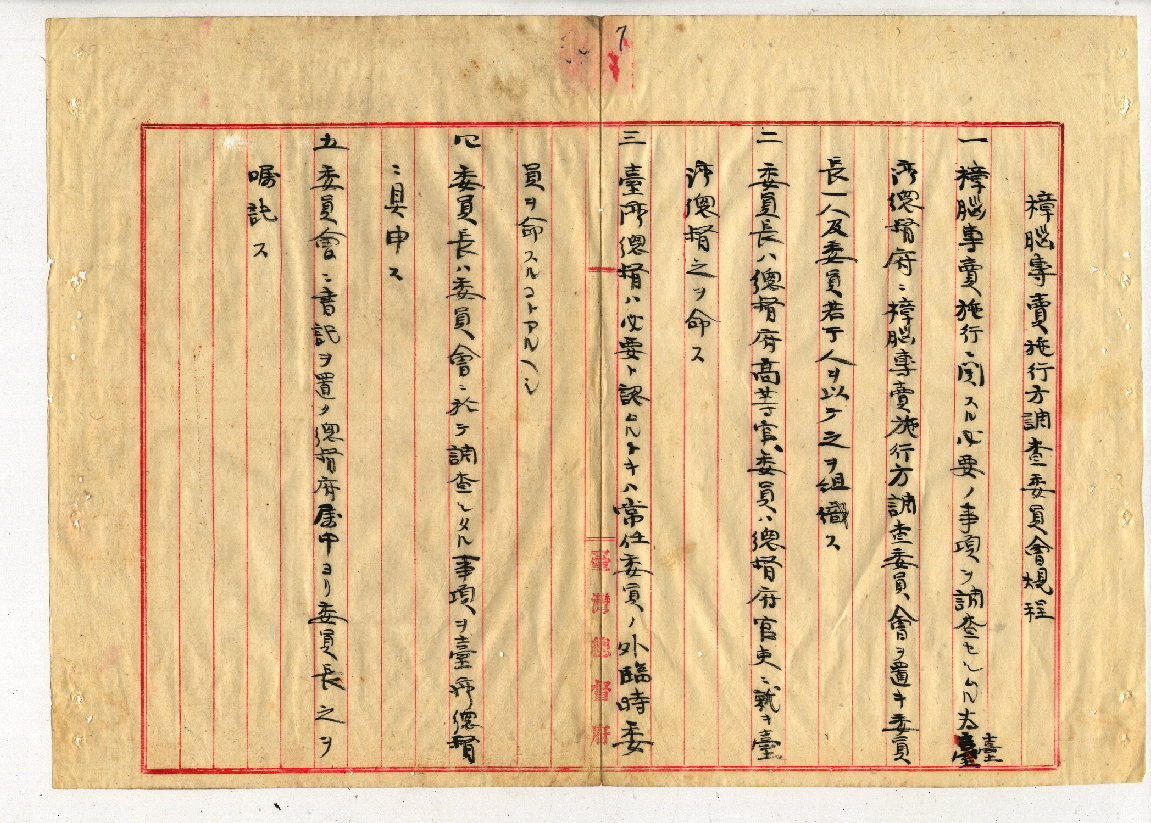 7
樟腦專賣施行方調査委員會規程
一 樟腦專賣施行ニ関スル必要ノ事項ヲ調査セシムル為臺
湾總督府ニ樟腦專賣施行方調査委員會ヲ置キ委員
長一人及委員若干人ヲ以テ之ヲ組織ス
二 委員長ハ總督府高等官、委員ハ總督府官吏ニ就キ臺
湾總督之ヲ命ス
三 臺湾總督ハ必要ト認ムルトキハ常任委員ノ外臨時委
員ヲ命スルコトアルヘシ
四 委員長ハ委員會ニ於テ調査シタル事項ヲ臺湾總督
ニ具申ス
五 委員會ニ書記ヲ置ク總督府属中ヨリ委員長之ヲ
嘱託ス
臺灣總督府